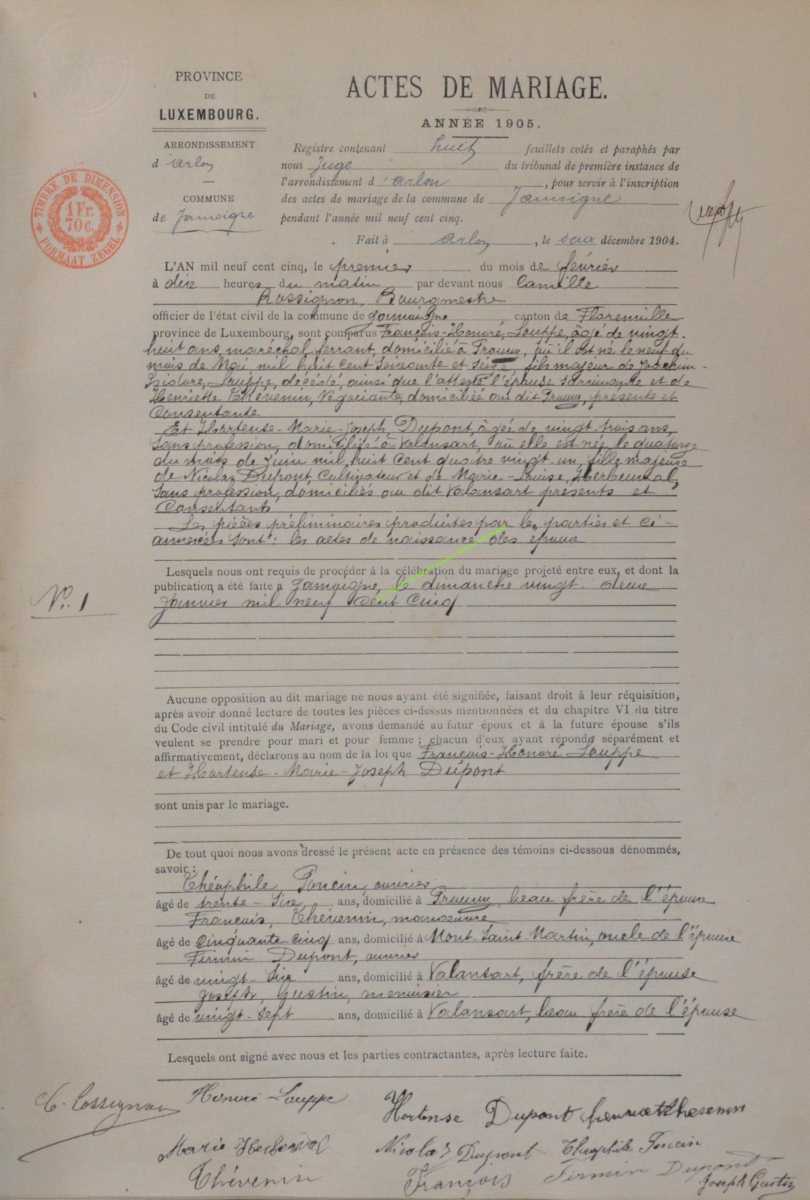 PROVINCE
DE
LUXEMBOURG.
ARRONDISSEMENT
d'Arlon
COMMUNE
de Jamoigne
TIMBRE DE DIMENSION
1 Fr.
70 c.
FORMAAT ZEGEL
ACTES DE MARIAGE.
ANNÉE 1905.
Registre contenant huit feuillets cotés et paraphés par
nous Juge du tribunal de première instance de
l'arrondissement d'Arlon, pour servir à l'inscription
des actes de mariage de la commune de Jamoigne
pendant l'année mil neuf cent cinq.
Fait à Arlon, le décembre 1904.
L'AN mil neuf cent cinq, le premier du mois de février
à dix heures du matin par devant nous Camille
Rossignon, Bourgmestre
officier de l'état civil de la commune de Jamoigne canton de Florenville
province de Luxembourg, sont comparus François-Honoré, Louppe, âgé de vingt
huit ans, maréchal ferrant, domicilié à, où il est né le neuf du
mois de Mai mil huit cent soixante et seize, fils majeur de Joachim-
Isidore, Louppe, décédé, ainsi que l'atteste l'épouse survivante et de
Henriette Thévenin, Négociante, domiciliée au dit, présente et
Consentante
Et Hortense-Marie-Joseph, Dupont, âgée de vingt trois ans,
sans profession, domiciliée à Valansart, où elle est née le quatorze
du mois de Juin mil huit cent quatre vingt un, fille majeure
de Nicolas Dupont, Cultivateur et de Marie-Louise,
Sans profession, domiciliés au dit Valansart présents et
Consentants
Les pièces préliminaires produites par les parties et ci-
annexées sont : les actes de naissance des époux
Lesquels nous ont requis de procéder à la célébration du mariage projeté entre eux, et dont la
publication a été faite à Jamoigne, le dimanche vingt deux
Janvier mil neuf cent cinq
N° 1
Aucune opposition au dit mariage ne nous ayant été signifiée, faisant droit à leur réquisition,
après avoir donné lecture de toutes les pièces ci-dessus mentionnées et du chapitre VI du titre
du Code civil intitulé du Mariage, avons demandé au futur époux et à la future épouse s'ils
veulent se prendre pour mari et pour femme ; chacun d'eux ayant répondu séparément et
affirmativement, déclarons au nom de la loi que François-Honoré Louppe
et Hortense-Marie-Joseph Dupont
sont unis par le mariage.
De tout quoi nous avons dressé le présent acte en présence des témoins ci-dessous dénommés,
savoir :
Théophile, Poncin, ouvrier
âgé de trente-six, ans, domicilié à, beau frère de l'épouse
François, Thévenin, manoeuvre
âgé de Cinquante cinq ans, domicilié à Mont Saint-Martin, oncle de l'épouse
Firmin Dupont, ouvrier
âgé de vingt-six ans, domicilié à Valansart, frère de l'épouse
Joseph, Gustin, menuisier
âgé de vingt-sept ans, domicilié à Valansart, beau frère de l'épouse
Lesquels ont signé avec nous et les parties contractantes, après lecture faite.
C. Rossignon
Honoré Louppe
Hortense Dupont
Marie
Nicolas Dupont
Théophile Poncin
Thévenin
François
Firmin Dupont
Joseph Gustin